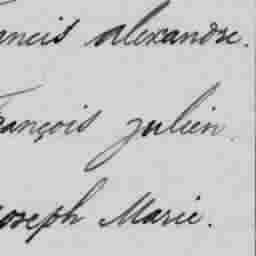 ancis alexandre.
françois julien.
Joseph Marie.